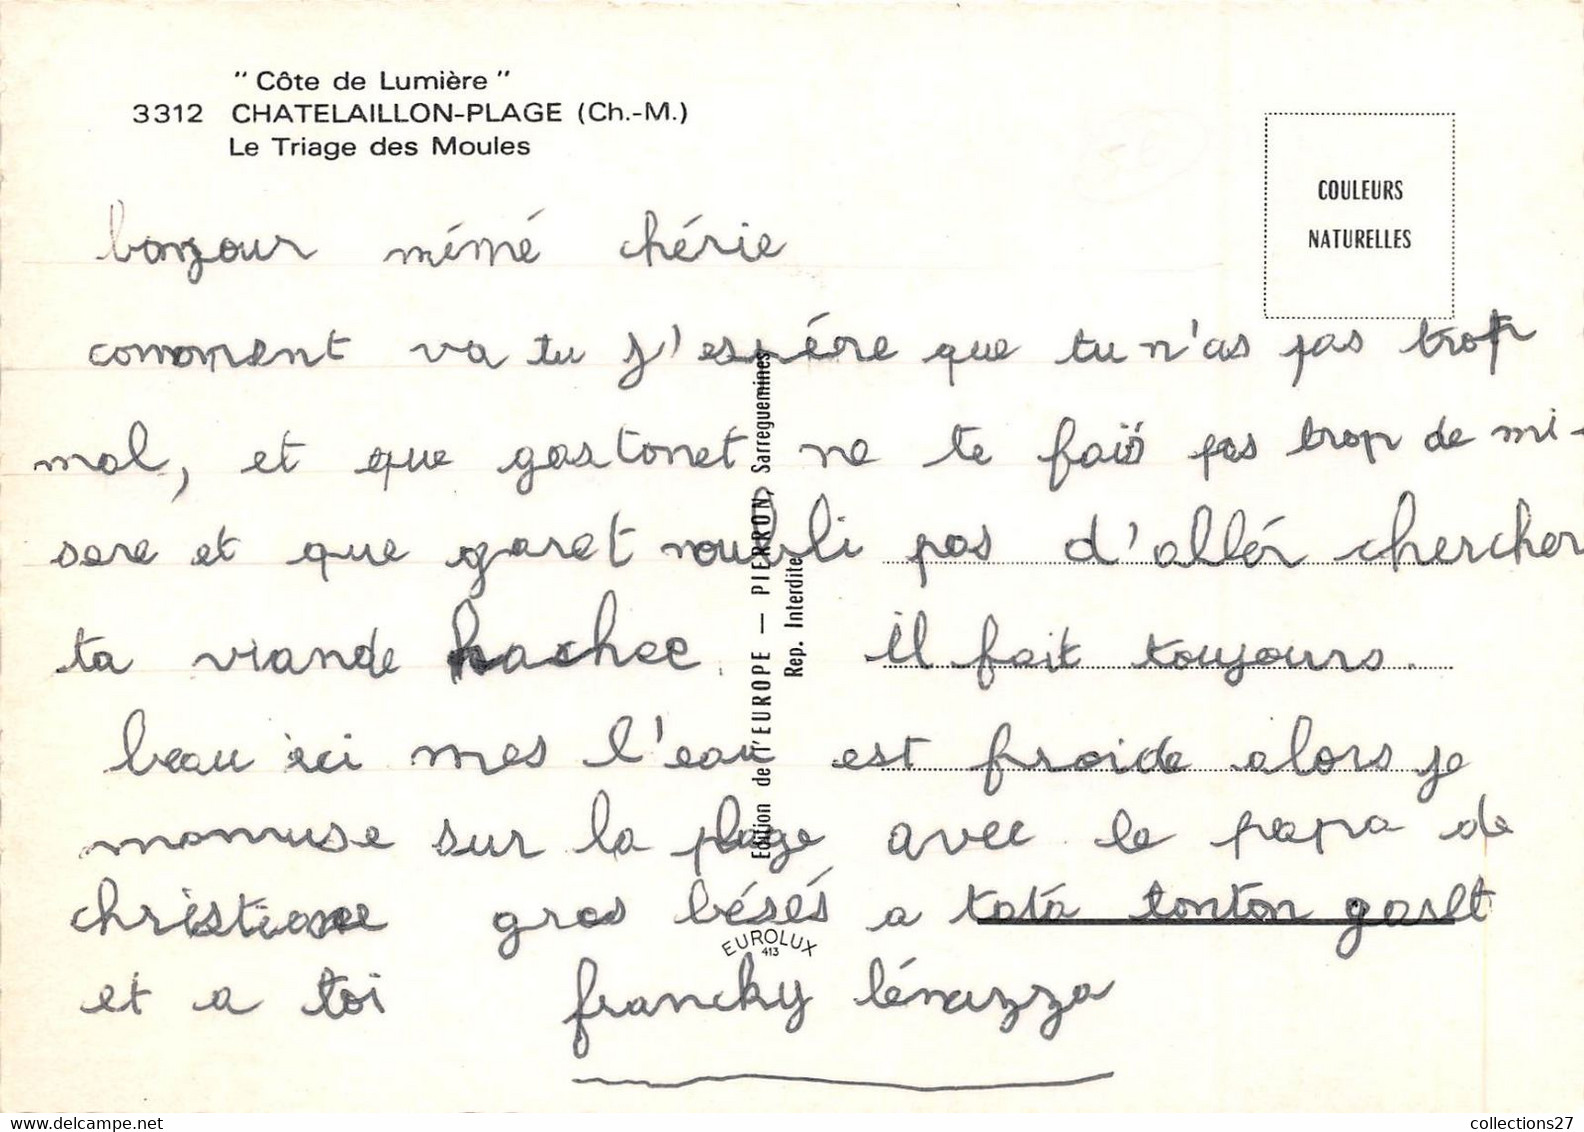 " Côte de Lumière "
3312 CHATELAILLON-PLAGE (Ch.-M.)
Le Triage des Moules
COULEURS
NATURELLES
bonjour mémé chérie
comment va tu j'espére que tu n'as pas trop
mal, et que gastonet ne te fais pas trop de mi-
sere et que garet noubli pas d'allér chercher
ta viande hachee. il fait toujours.
beau ici mes l'eau est froide alors je
mamuse sur la plage avec le papa de
christiane gros bésés a tata tonton
et a toi francky lénazza
Edition de l'EUROPE — PIERRON, Sarreguemines
Rep. Interdite
EUROLUX
413
collections27